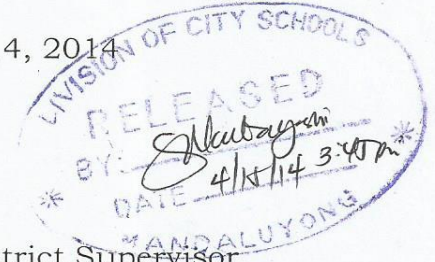 4, 2014
DIVISION OF CITY SCHOOLS
RELEASED
BY:
4/15/14 3:45 pm
DATE
MANDALUYONG
trict Supervisor